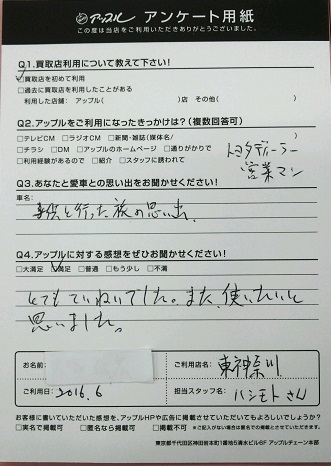 アップル アンケート用紙
この度は当店をご利用いただきありがとうございました。
Q1.買取店利用について教えて下さい!
☑買取店を初めて利用
□過去に買取店を利用したことがある
利用した店舗: アップル( )店 その他( )
Q2.アップルをご利用になったきっかけは?(複数回答可)
□テレビCM □ラジオCM □新聞・雑誌(媒体名/ )
□チラシ □DM □アップルのホームページ □通りがかりで
□利用経験があるので □紹介 □スタッフに誘われて
トヨタディーラー
営業マン
Q3.あなたと愛車との思い出をお聞かせください!
車名:
子供と行った旅の思い出。
Q4.アップルに対する感想をぜひお聞かせください!
□大満足 ☑満足 □普通 □もう少し □不満
とてもていねいでした。また、使いたいと
思いました。
お名前:
ご利用店名:
東神奈川
ご利用日:
2016.6
担当スタッフ名:
ハシモトさん
お客様に書いていただいた感想を、アップルHPや広告に掲載させていただいてもよろしいでしょうか?
□実名で掲載可 □匿名なら掲載可 □掲載不可 ※ご記入がない場合は匿名での掲載とさせていただきます。
東京都千代田区神田岩本町1番地5清水ビル6F アップルチェーン本部